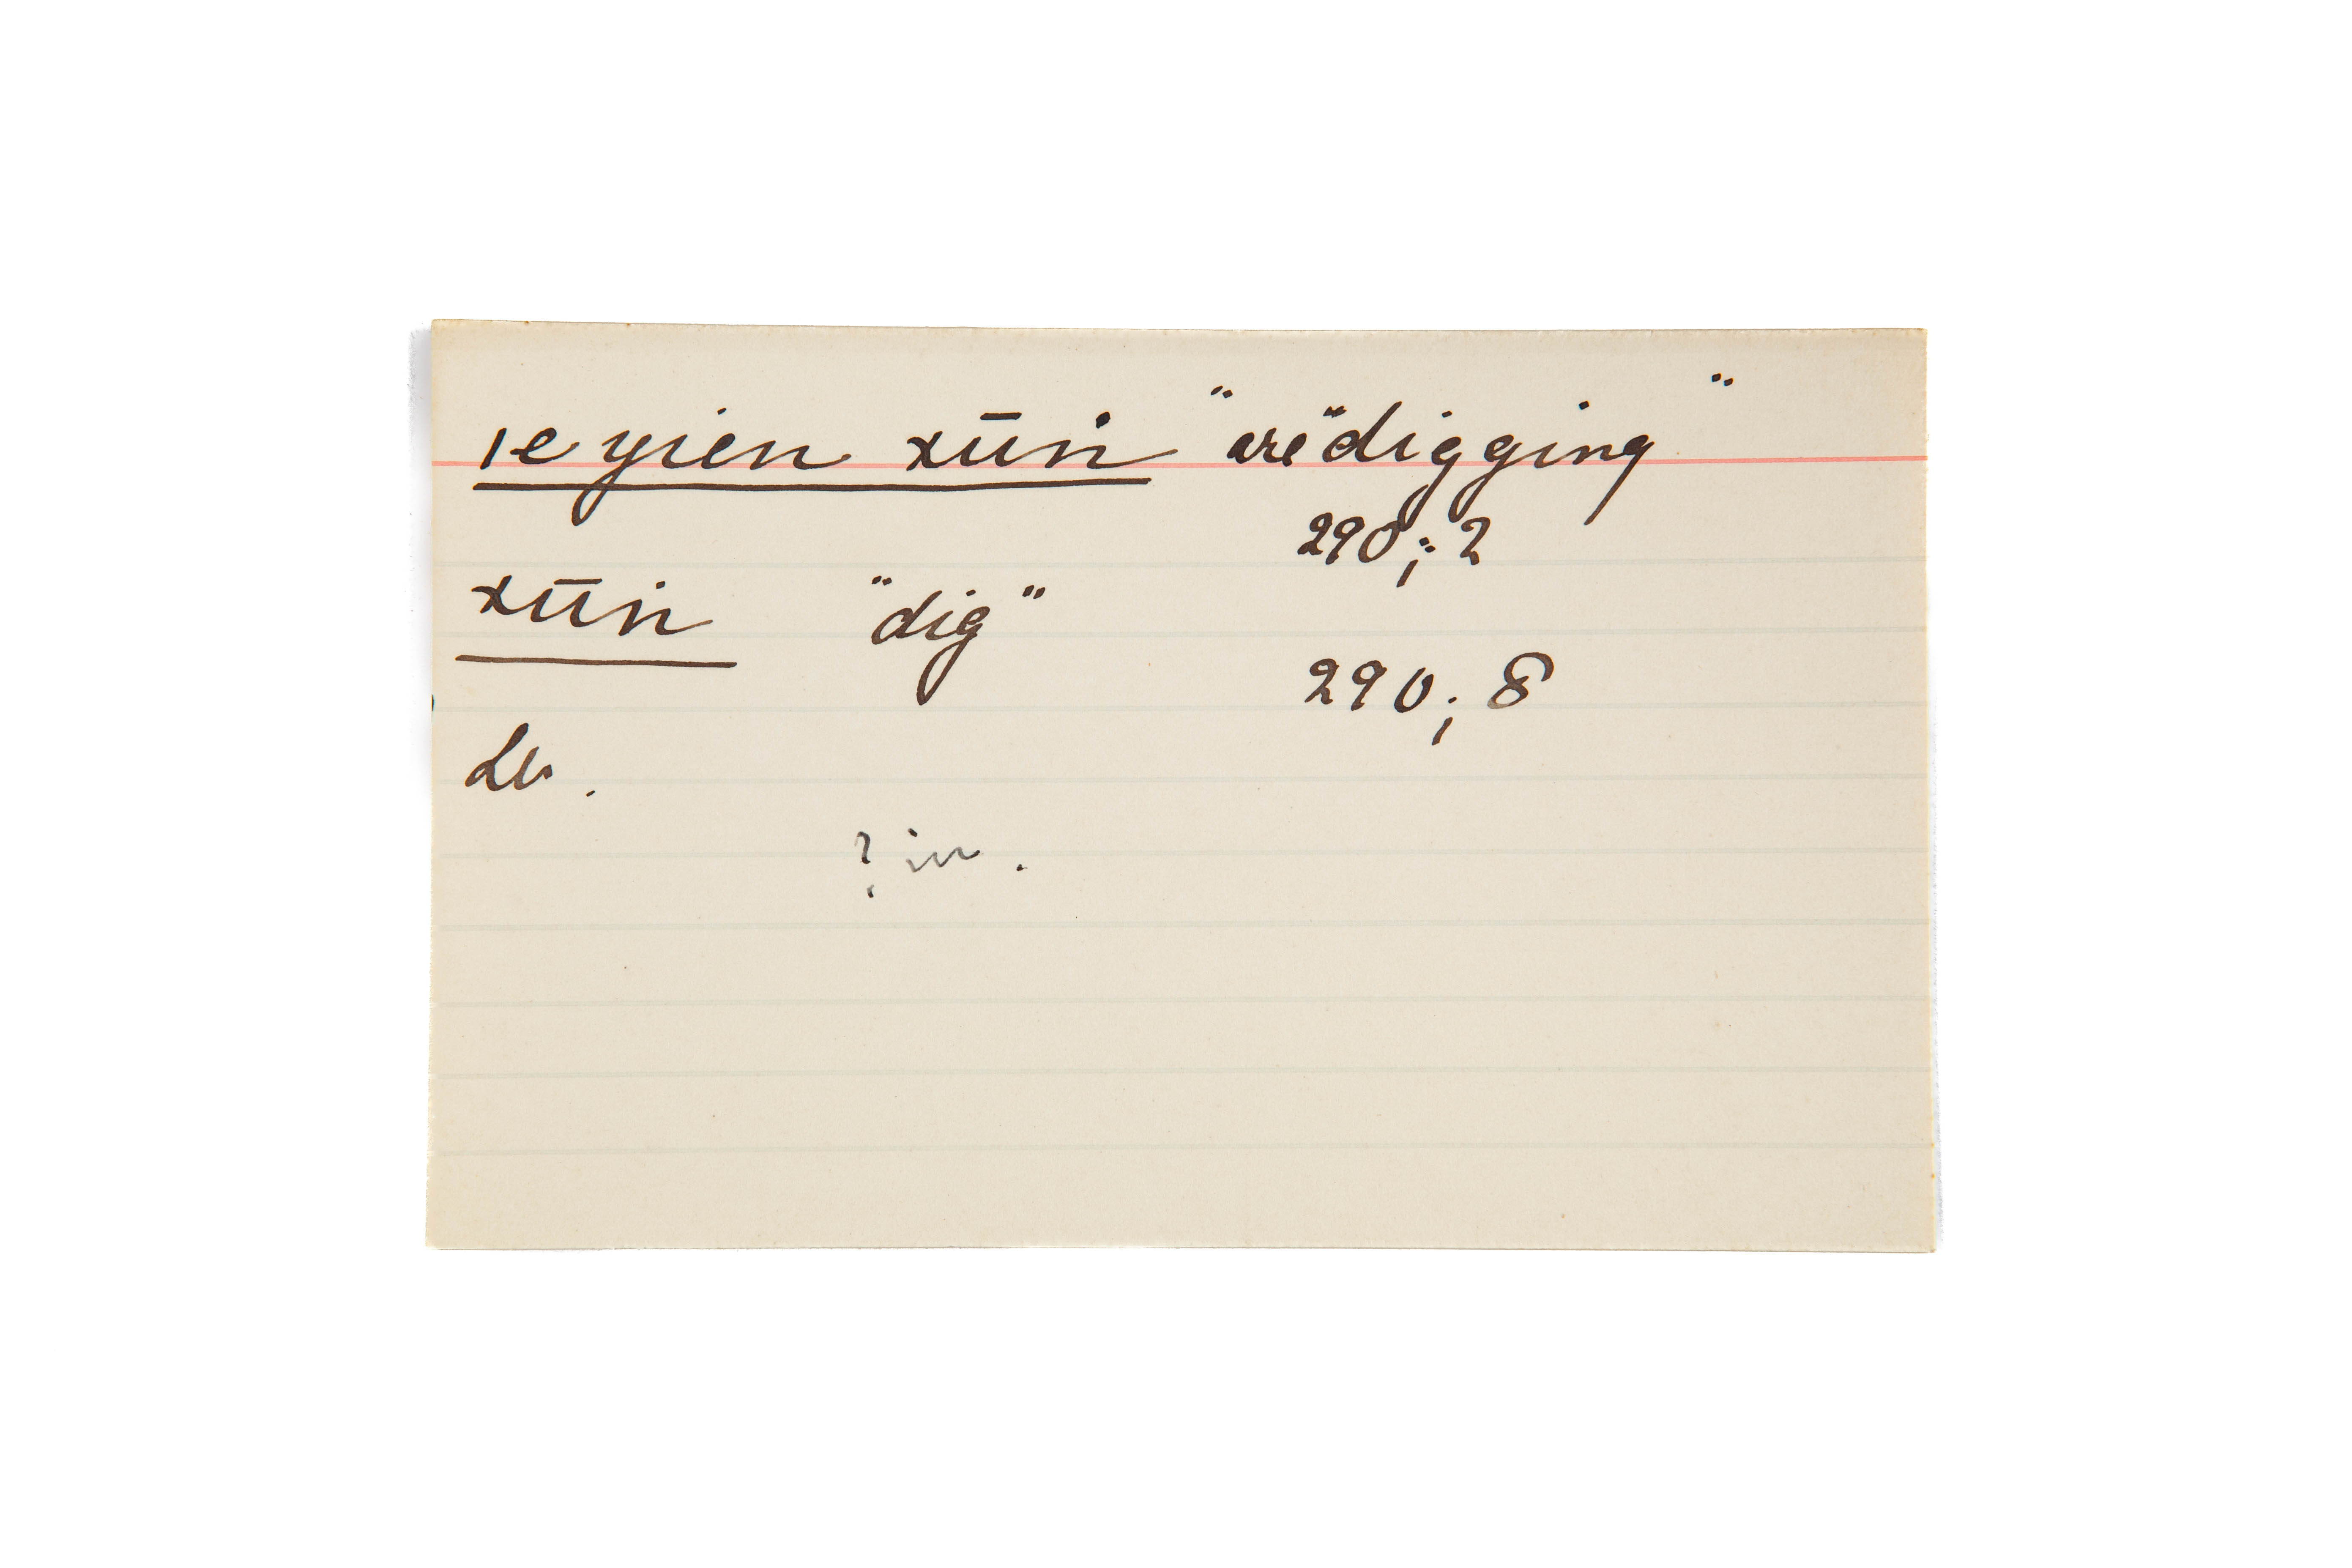 ɪe yien xūn "are" digging"
290; 2
xūn "dig"
290; 8
Lb.
? in.